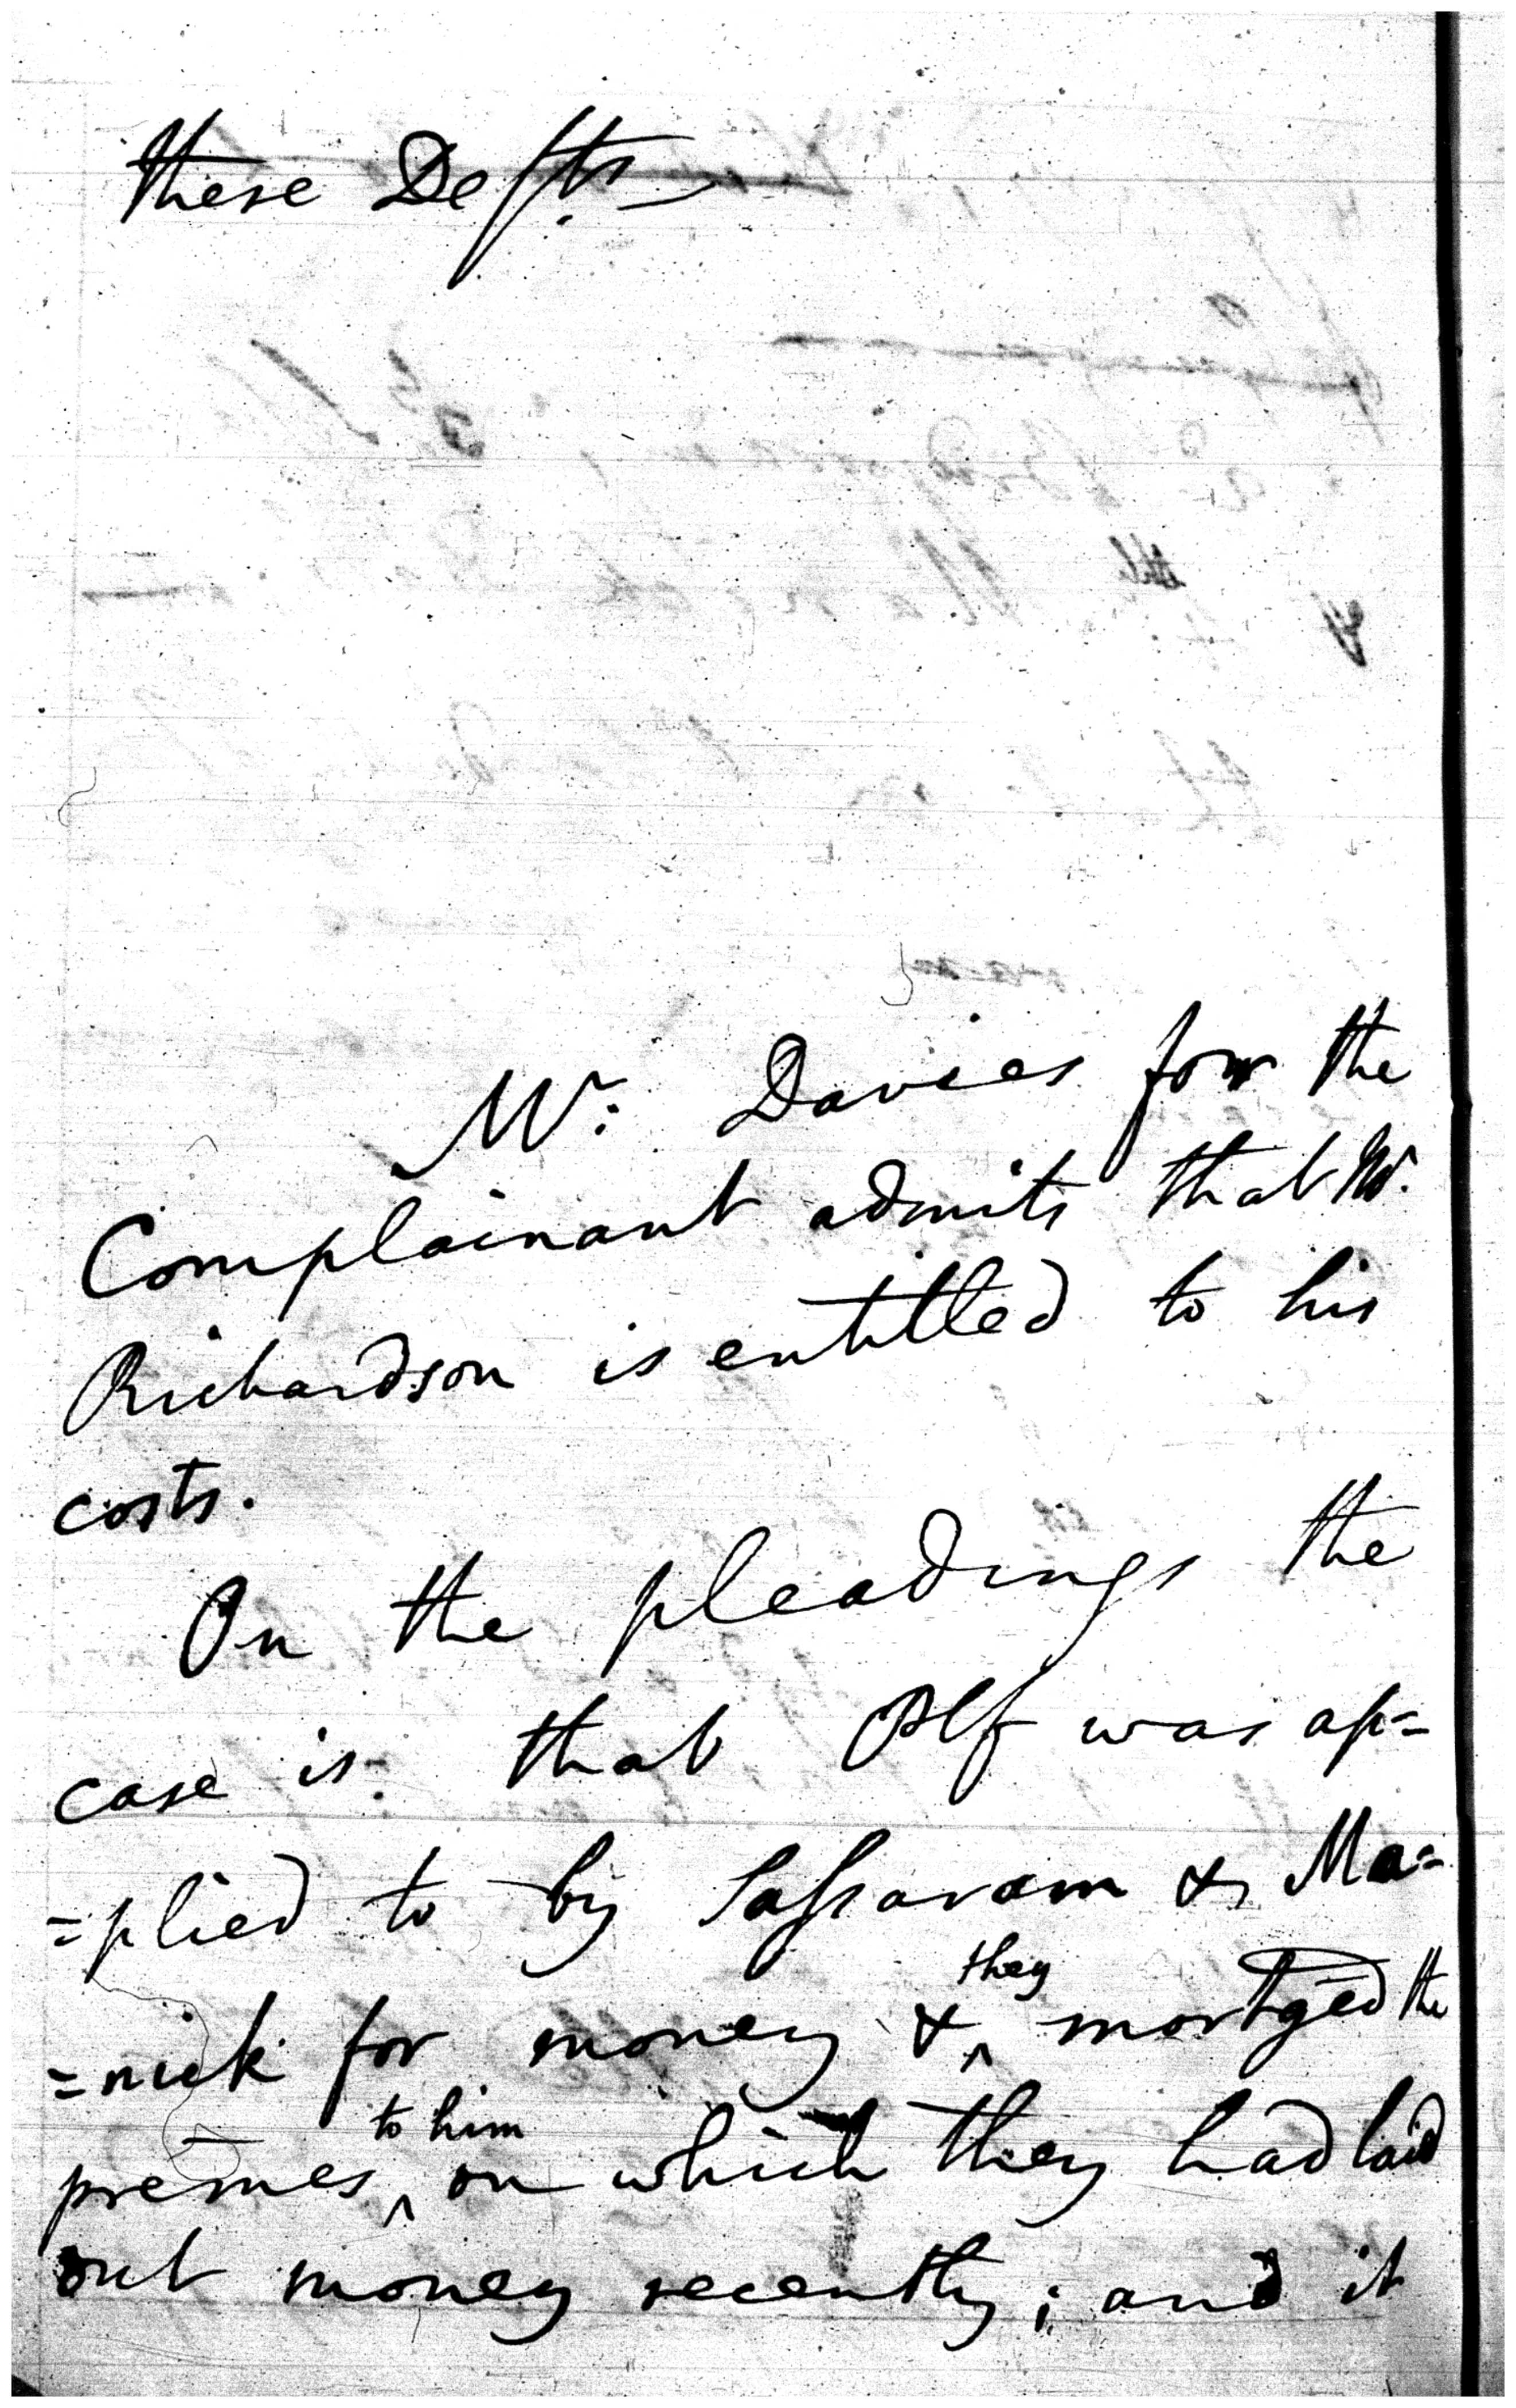 these Defts
Mr. Davies for the
Complainant admits that Mr.
Richardson is entitled to his
costs.
On the pleadings the
case is that Plf was ap=
=plied to by Sassaram & Ma=
=nick for money & they mortgēd the
premes to him on which they had laid
out money recently; and it